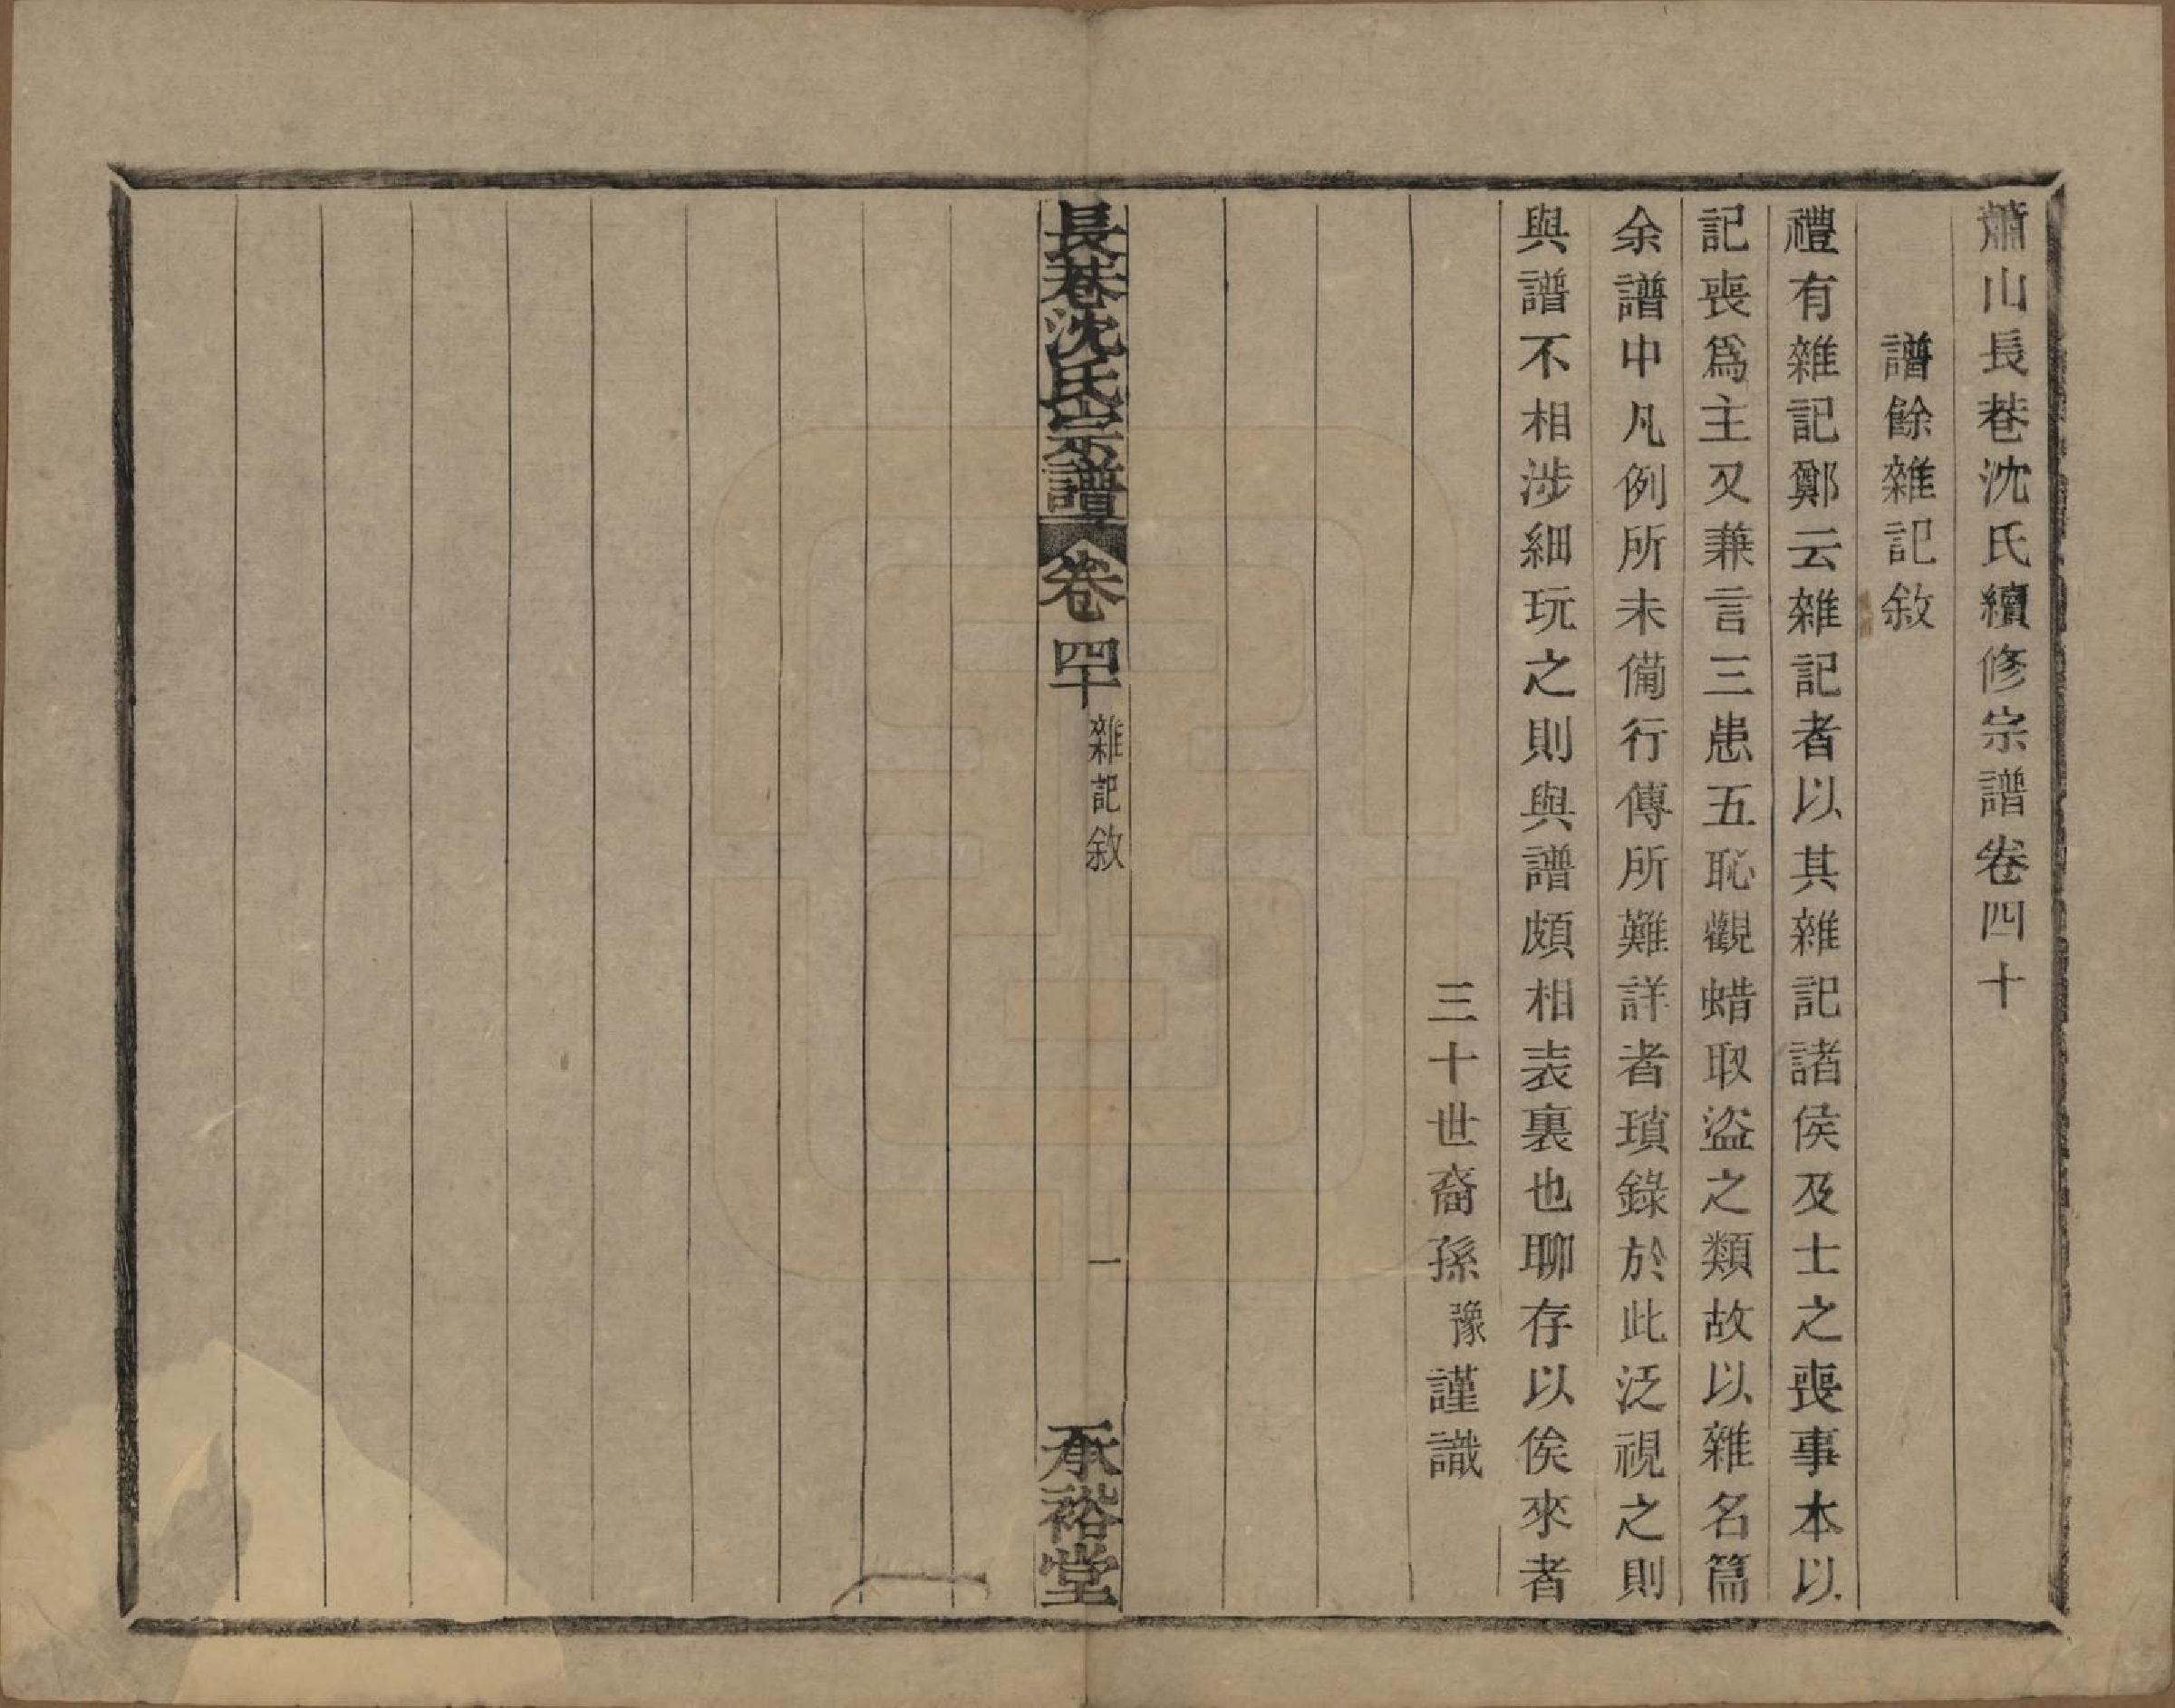 蕭山長巷沈氏續修宗譜卷四十
譜餘雜記敘
禮有雜記鄭云雜記者以其雜記諸侯及士之喪事本以
記喪爲主又兼言三患五恥觀蜡取盜之類故以雜名篇
余譜中凡例所未備行傳所難詳者瑣錄於此泛視之則
與譜不相涉細玩之則與譜頗相表裏也聊存以俟來者
三十世裔孫豫謹識
長巷沈氏宗譜 卷四十 雜記敘 一 承裕堂